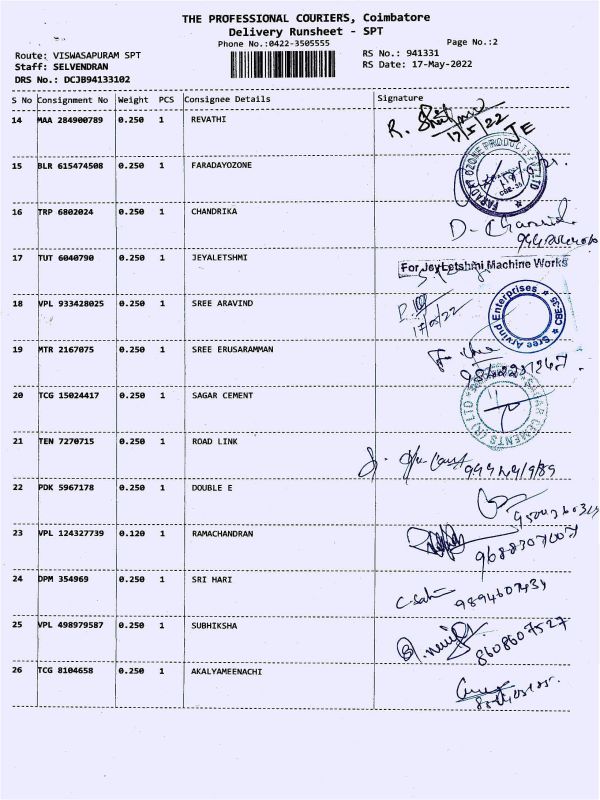 THE PROFESSIONAL COURIERS, Coimbatore
Delivery Runsheet - SPT
Phone No.:0422-3505555
Page No.:2
Route: VISWASAPURAM SPT
RS No.: 941331
Staff: SELVENDRAN
RS Date: 17-May-2022
DRS No.: DCJB94133102
S No Consignment No Weight PCS Consignee Details Signature
14 MAA 284900789 0.250 1 REVATHI
R.
17/5/22
15 BLR 615474508 0.250 1 FARADAYOZONE
FARADAY OZONE PRODUCTS PVT LTD
CBE-35
16 TRP 6802024 0.250 1 CHANDRIKA
17 TUT 6040790 0.250 1 JEYALETSHMI
For JeyLetshmi Machine Works
18 VPL 933428025 0.250 1 SREE ARAVIND
17/05/22
Sree Arvind Enterprises * CBE-35 *
19 MTR 2167075 0.250 1 SREE ERUSARAMMAN
20 TCG 15024417 0.250 1 SAGAR CEMENT
SAGAR CEMENTS (R) LTD
21 TEN 7270715 0.250 1 ROAD LINK
22 PDK 5967178 0.250 1 DOUBLE E
23 VPL 124327739 0.120 1 RAMACHANDRAN
9688307007
24 DPM 354969 0.250 1 SRI HARI
9894607434
25 VPL 498979587 0.250 1 SUBHIKSHA
8608607527
26 TCG 8104658 0.250 1 AKALYAMEENACHI